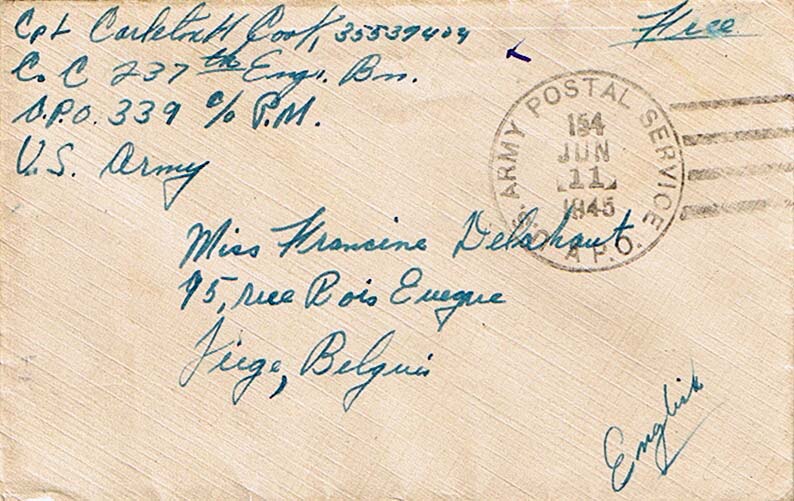 Cpt Carleton H Cook, 35539404
Free
Co C 237th Engr. Bn.
A.P.O. 339 c/o P.M.
U.S. Army
U.S. ARMY POSTAL SERVICE
A.P.O.
154
JUN
11
1945
Miss Francine Delahaut
95, rue Bois Eveque
Liege, Belguis
English